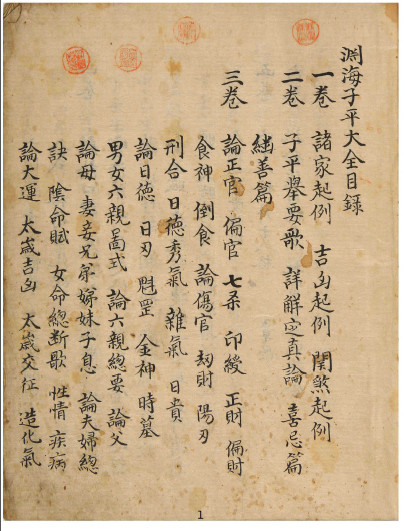 淵海子平大全目錄
一卷 諸家起例 吉凶起例 関煞起例
二卷 子平舉要歌 詳解定真論 喜忌篇
継善篇
三卷 論正官 偏官 七杀 印綬 正財 偏財
食神 倒食 論傷官 刼財 陽刃
刑合 日德秀氣 雜氣 日貴
論日德 日刃 魁罡 金神 時墓
男女六親啚式 論六親總要 論父
論母 妻妾兄弟姊妹子息 論夫婦總
訣 陰命賦 女命總断歌 性情 疾病
論大運 太歲吉凶 太歲交征 造化氣
1